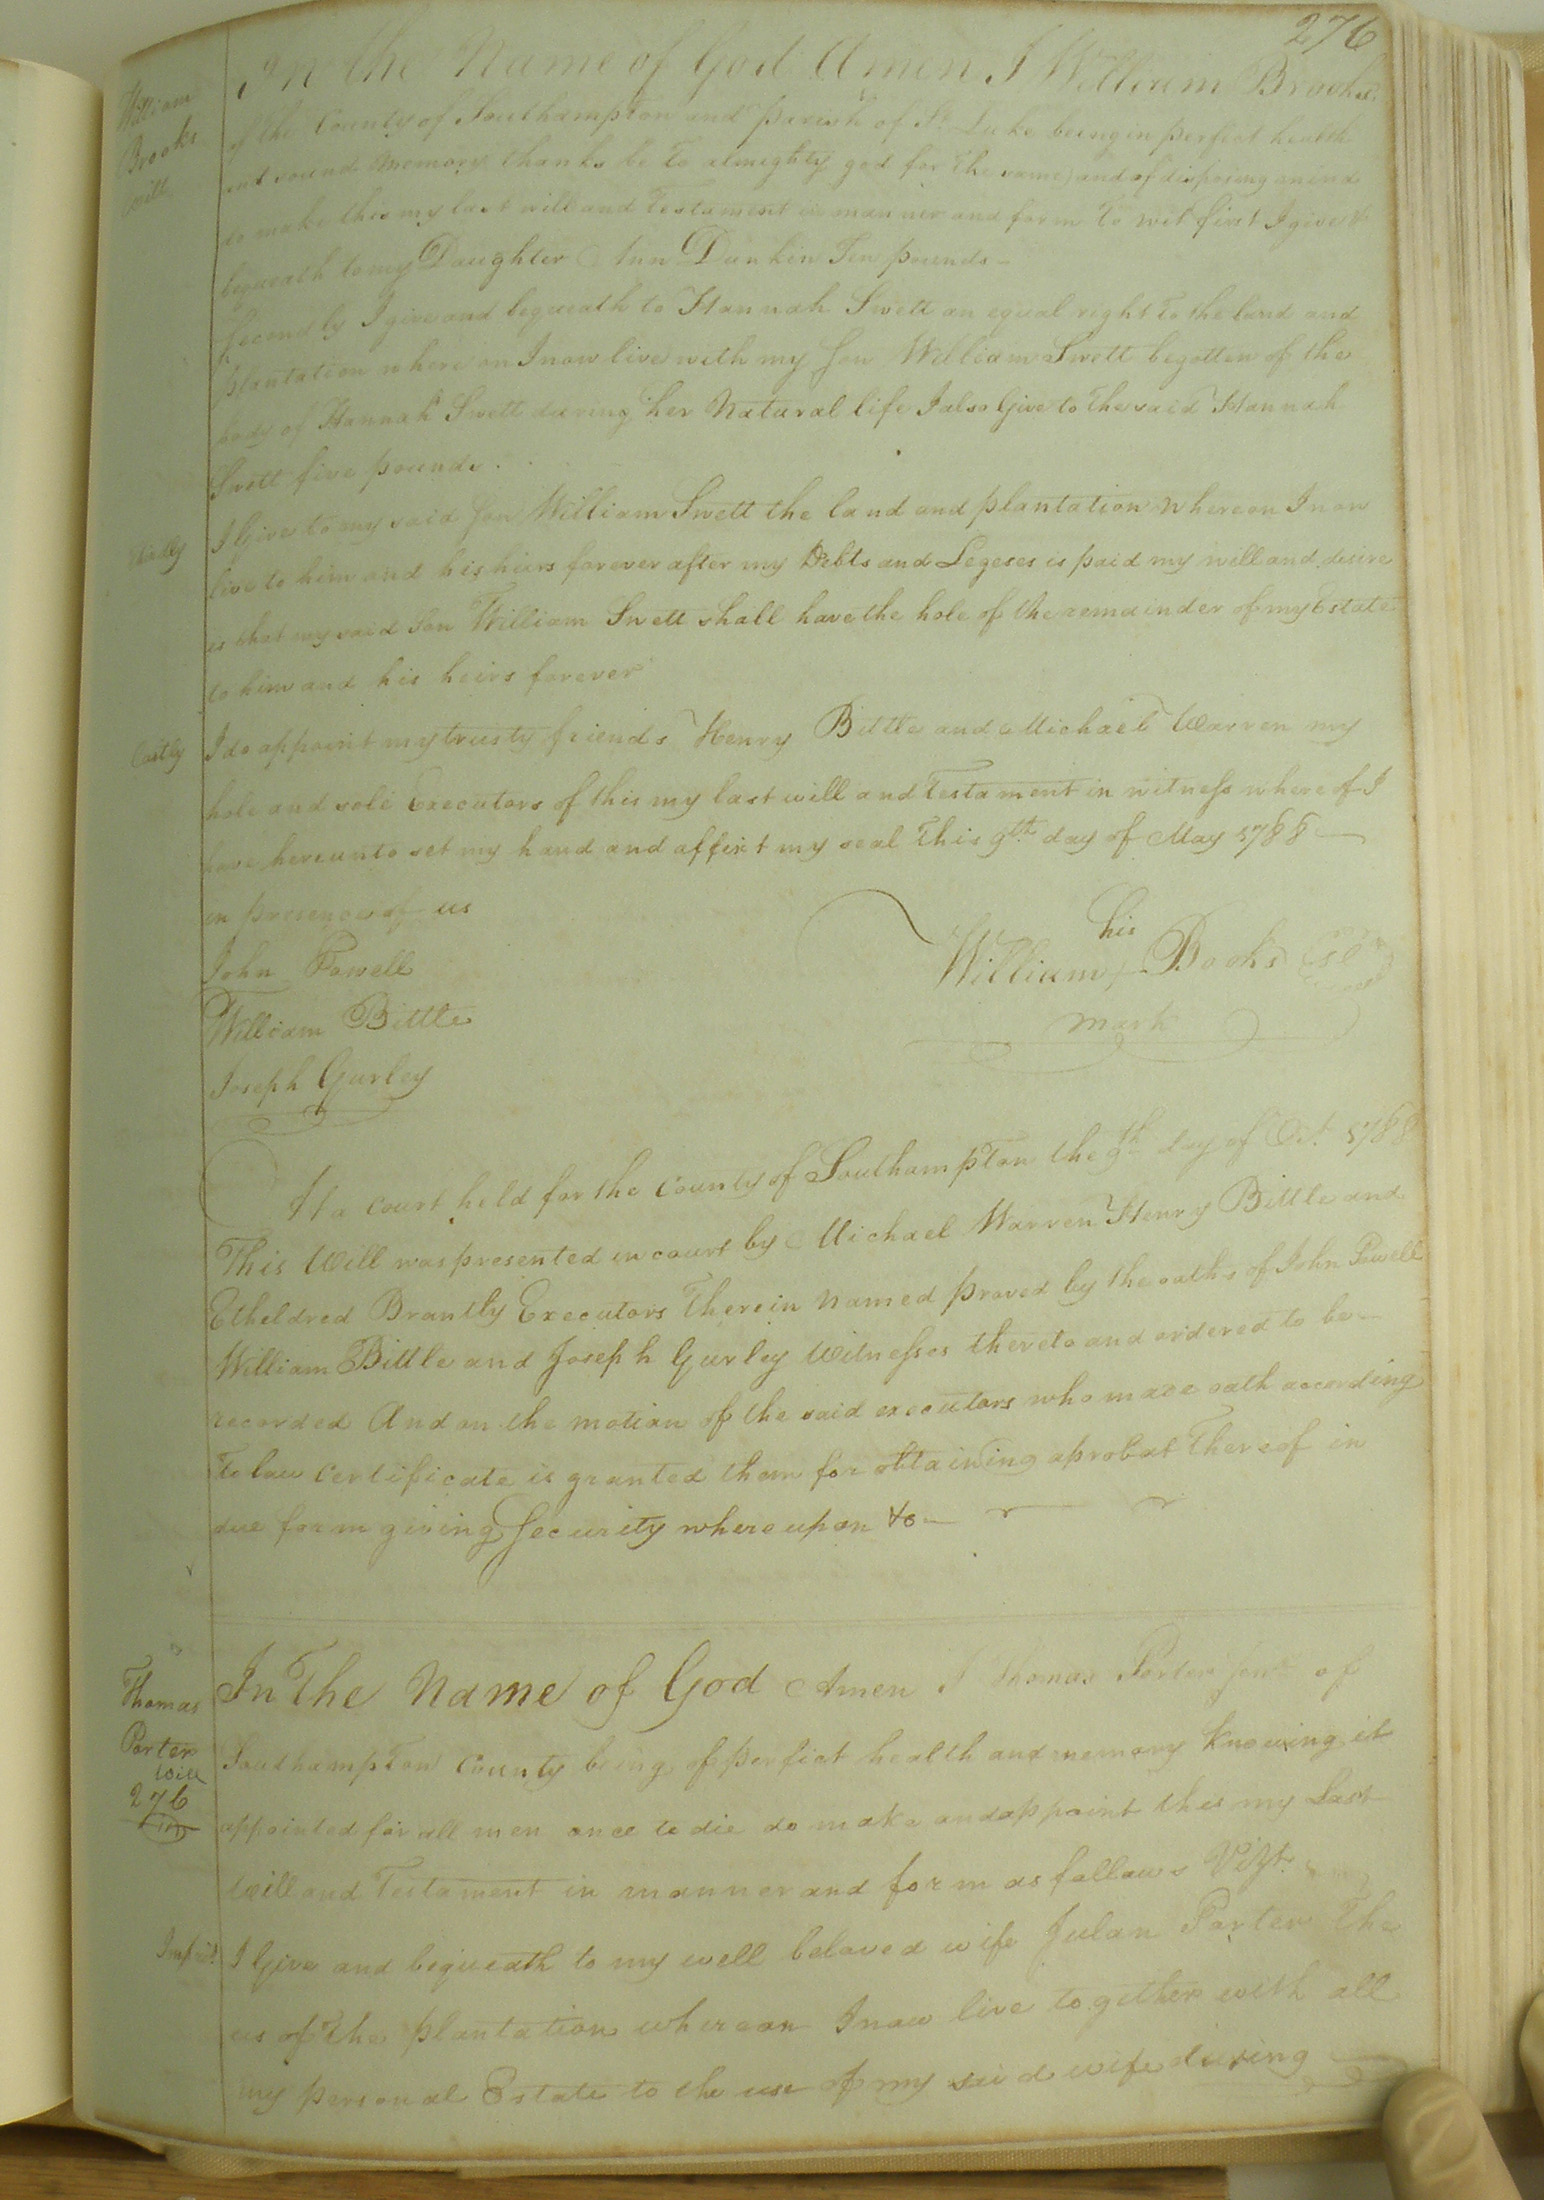 276
William
Brooks
will
In the Name of God Amen I William Brooks
of the County of Southampton and parish of St. Luke being in perfict health
and sound memory thanks be to almighty god for the same, and of disposing mind
to make this my last will and Testament in manner and form to wit first I give &
bequeath to my Daughter Ann Dunkin Ten pounds -
Secondly I give and bequeath to Hannah Swett an equal right to the land and
plantation where on I now live with my Son William Swett begotten of the
body of Hannah Swett during her Natural life I also Give to the said Hannah
Swett five pounds.
Thirdly I Give to my said Son William Swett the land and plantation whereon I now
live to him and his hiirs forever after my Debts and Legeses is paid my will and desire
is that my said Son William Swett shall have the hole of the remainder of my Estate
to him and his heirs forever
Lastly I do appoint my trusty friends Henry Bittle and Michael Warren my
hole and sole Executors of this my last will and Testament in witness where of I
have hereunto set my hand and affixt my seal This 9th day of May 1788 —
in presence of us
John Powell
William Bittle
Joseph Gurley
his
William + Books
mark
At a court held for the County of Southampton the 9th day of Oct. 1788
This Will was presented in court by Michael Warren Henry Bittle and
Etheldred Brantly Executors Therein Named proved by the oaths of John Powell
William Bittle and Joseph Gurley Witnesses thereto and ordered to be -
recorded And on the motion of the said executors who made oath according
To law certificate is granted them for obtaining aprobat Thereof in
due form giving Security whereupon &c —
Thomas
Porter
Will
276
In The Name of God Amen I Thomas Porter Senr of
Southampton County being of perfict health and memory knowing it
appointed for all men once to die do make and appoint this my Last
Will and Testament in manner and form as follows Vizt.
I Give and bequeath to my well beloved wife Julan Porter The
us of the plantation whereon I now live together with all
my personal Estate to the use of my said wife during